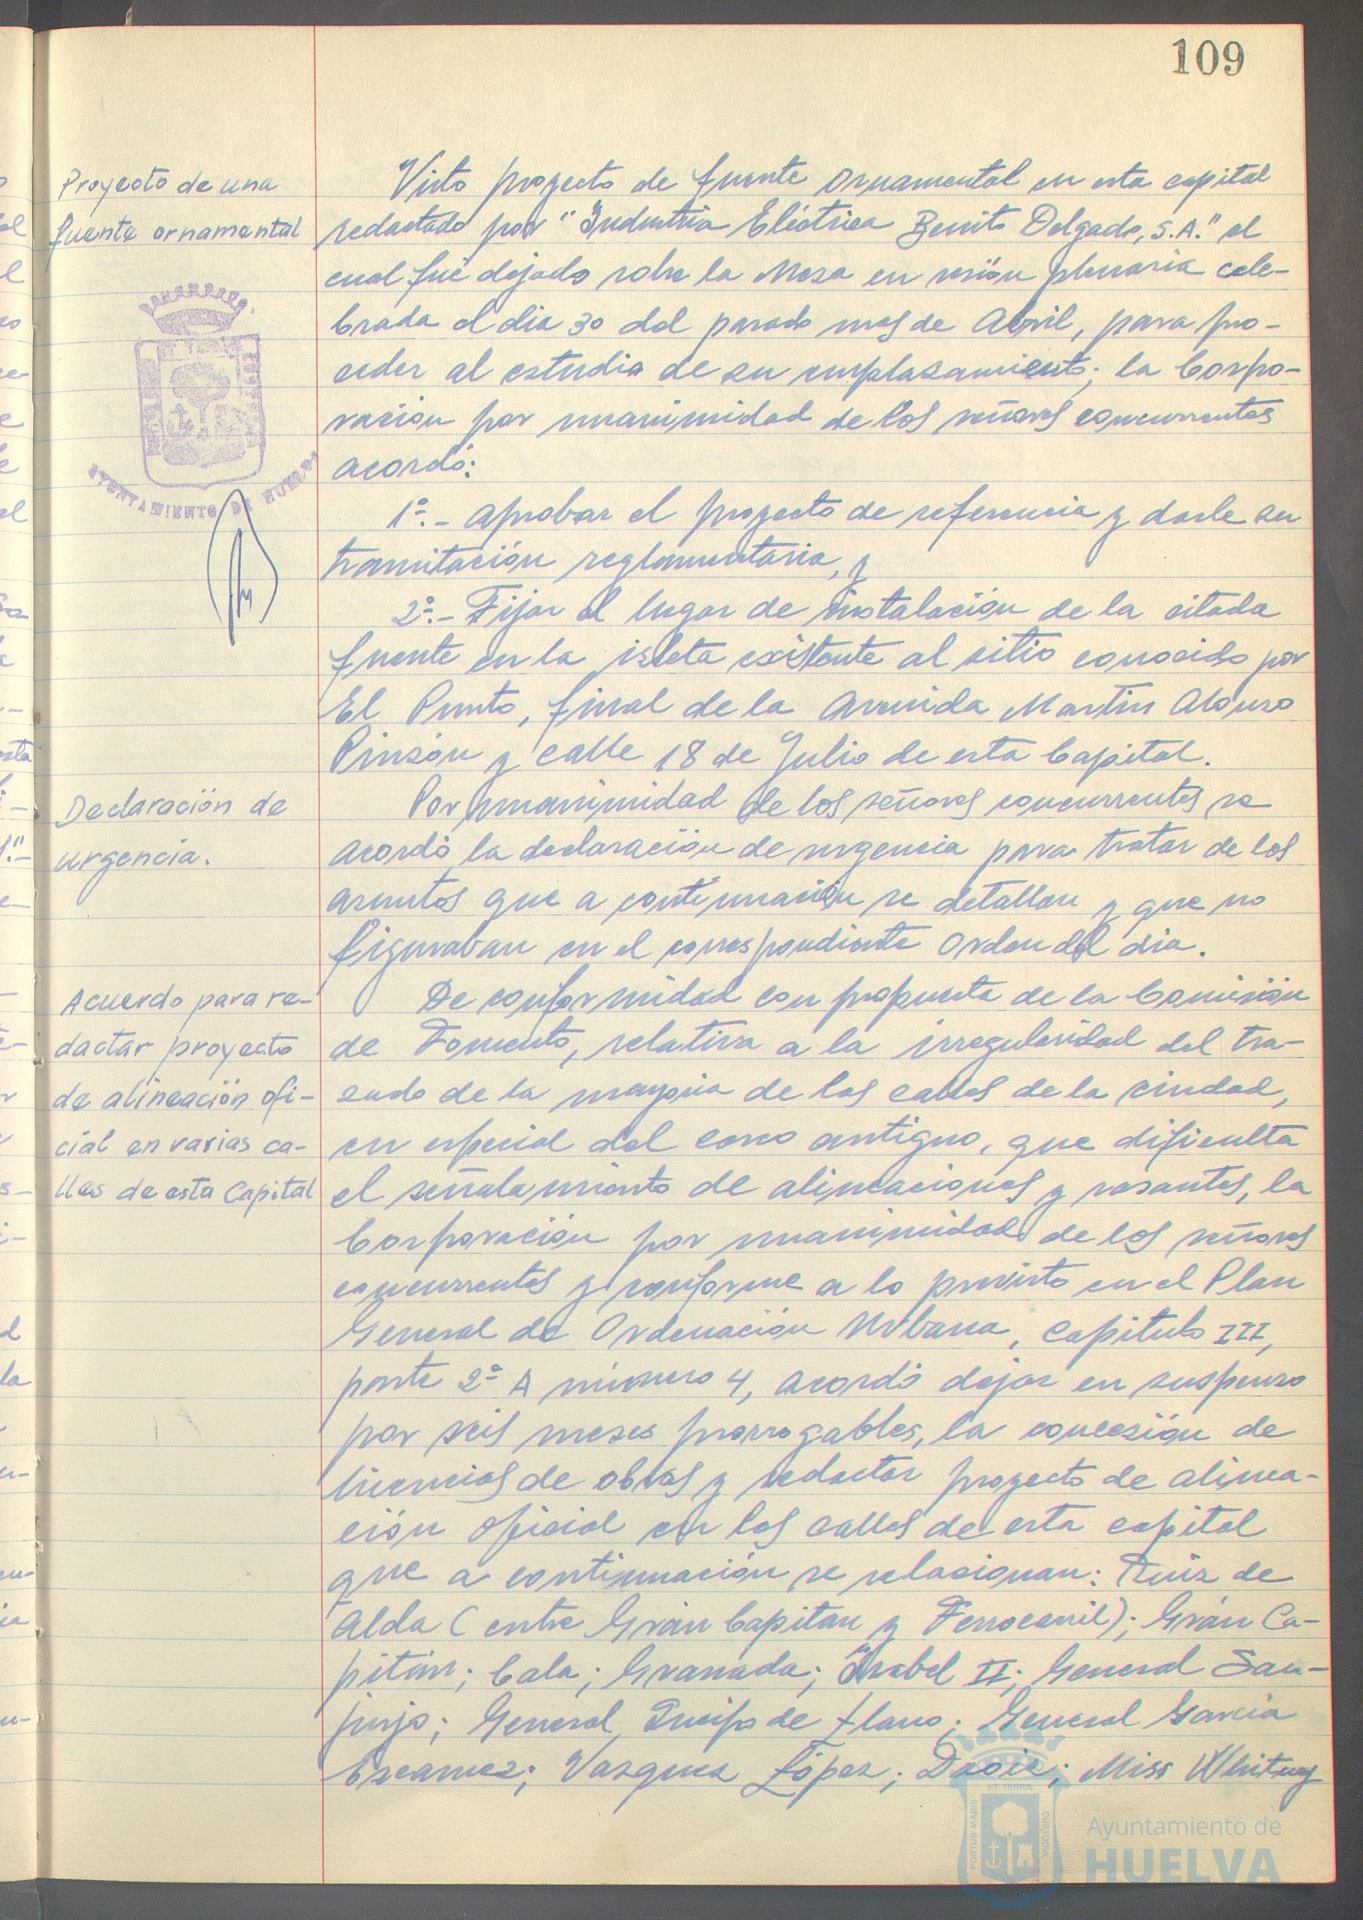 109
Proyecto de una
fuente ornamental
Visto proyecto de fuente ornamental en esta capital
redactado por "Industria Eléctrica Benito Delgado, S.A." el
cual fué dejado sobre la Mesa en sesión plenaria cele-
brada el dia 30 del pasado mes de Abril, para pro-
ceder al estudio de su emplazamiento; la Corpo-
ración por unanimidad de los señores concurrentes
acordó:
1º.- Aprobar el proyecto de referencia y darle su
tramitación reglamentaria, y
2º.- Fijar el lugar de instalación de la citada
fuente en la isleta existente al sitio conocido por
El Punto, final de la Avenida Martin Alonso
Pinzón y calle 18 de Julio de esta Capital.
AYUNTAMIENTO DE HUELVA
Declaración de
urgencia.
Por unanimidad de los señores concurrentes se
acordó la declaración de urgencia para tratar de los
asuntos que a continuación se detallan y que no
figuraban en el correspondiente Orden del dia.
Acuerdo para re-
dactar proyecto
de alineación ofi-
cial en varias ca-
lles de esta Capital
De conformidad con propuesta de la Comisión
de Fomento, relativa a la irregularidad del tra-
zado de la mayoria de las calles de la ciudad,
en especial del casco antiguo, que dificulta
el señalamiento de alineaciones y rasantes, la
Corporación por unanimidad de los señores
concurrentes y conforme a lo previsto en el Plan
General de Ordenación Urbana, Capitulo III,
parte 2ª A número 4, acordó dejar en suspenso
por seis meses prorrogables, la concesión de
licencias de obras y redactar proyecto de alinea-
ción oficial en las calles de esta capital
que a continuación se relacionan: Ruiz de
Alda (entre Gran Capitan y Ferrocarril); Grán Ca-
pitán; Cala; Granada; Isabel II; General San-
jurjo; General Queipo de Llano; General Garcia
Escamez; Vazquez López; Daoiz; Miss Whitney
ET TERRA
PORTUS MARIS
CUSTODIA
Ayuntamiento de
HUELVA